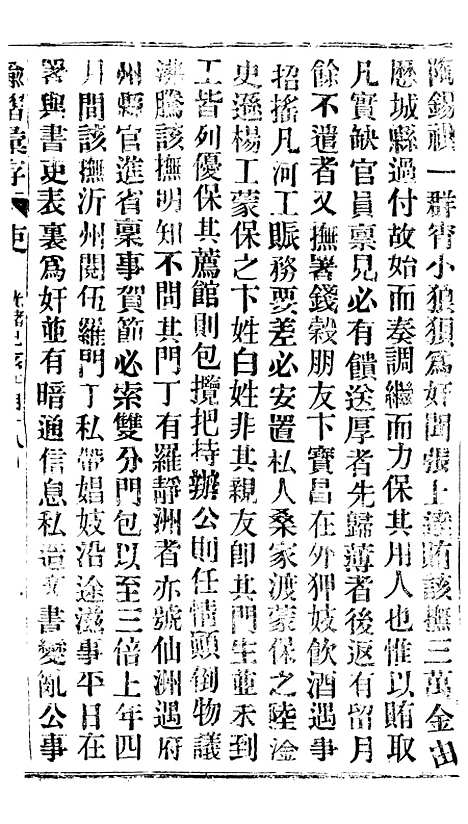 陶錫祺一群宵小狼狽爲奸聞張上達賄該撫三萬金由
歷城縣過付故始而奏調繼而力保其用人也惟以賄取
凡實缺官員稟見必有饋送厚者先歸薄者後返有留月
餘不遣者又撫署錢穀朋友卞寶昌在外狎妓飲酒遇事
招搖凡河工賑務要差必安置私人桑家渡蒙保之陸淦
史遜楊工蒙保之卞姓白姓非其親友卽其門生並未到
工皆列優保其薦館則包攬把持辦公則任情顛倒物議
沸騰該撫明知不問其門丁有羅靜洲者亦號仙洲遇府
州縣官進省稟事賀節必索雙分門包以至三倍上年四
月間該撫沂州閱伍羅門丁私帶娼妓沿途滋事平日在
署與書吏表裏爲奸並有暗通信息私造文書變亂公事
諭摺彙存